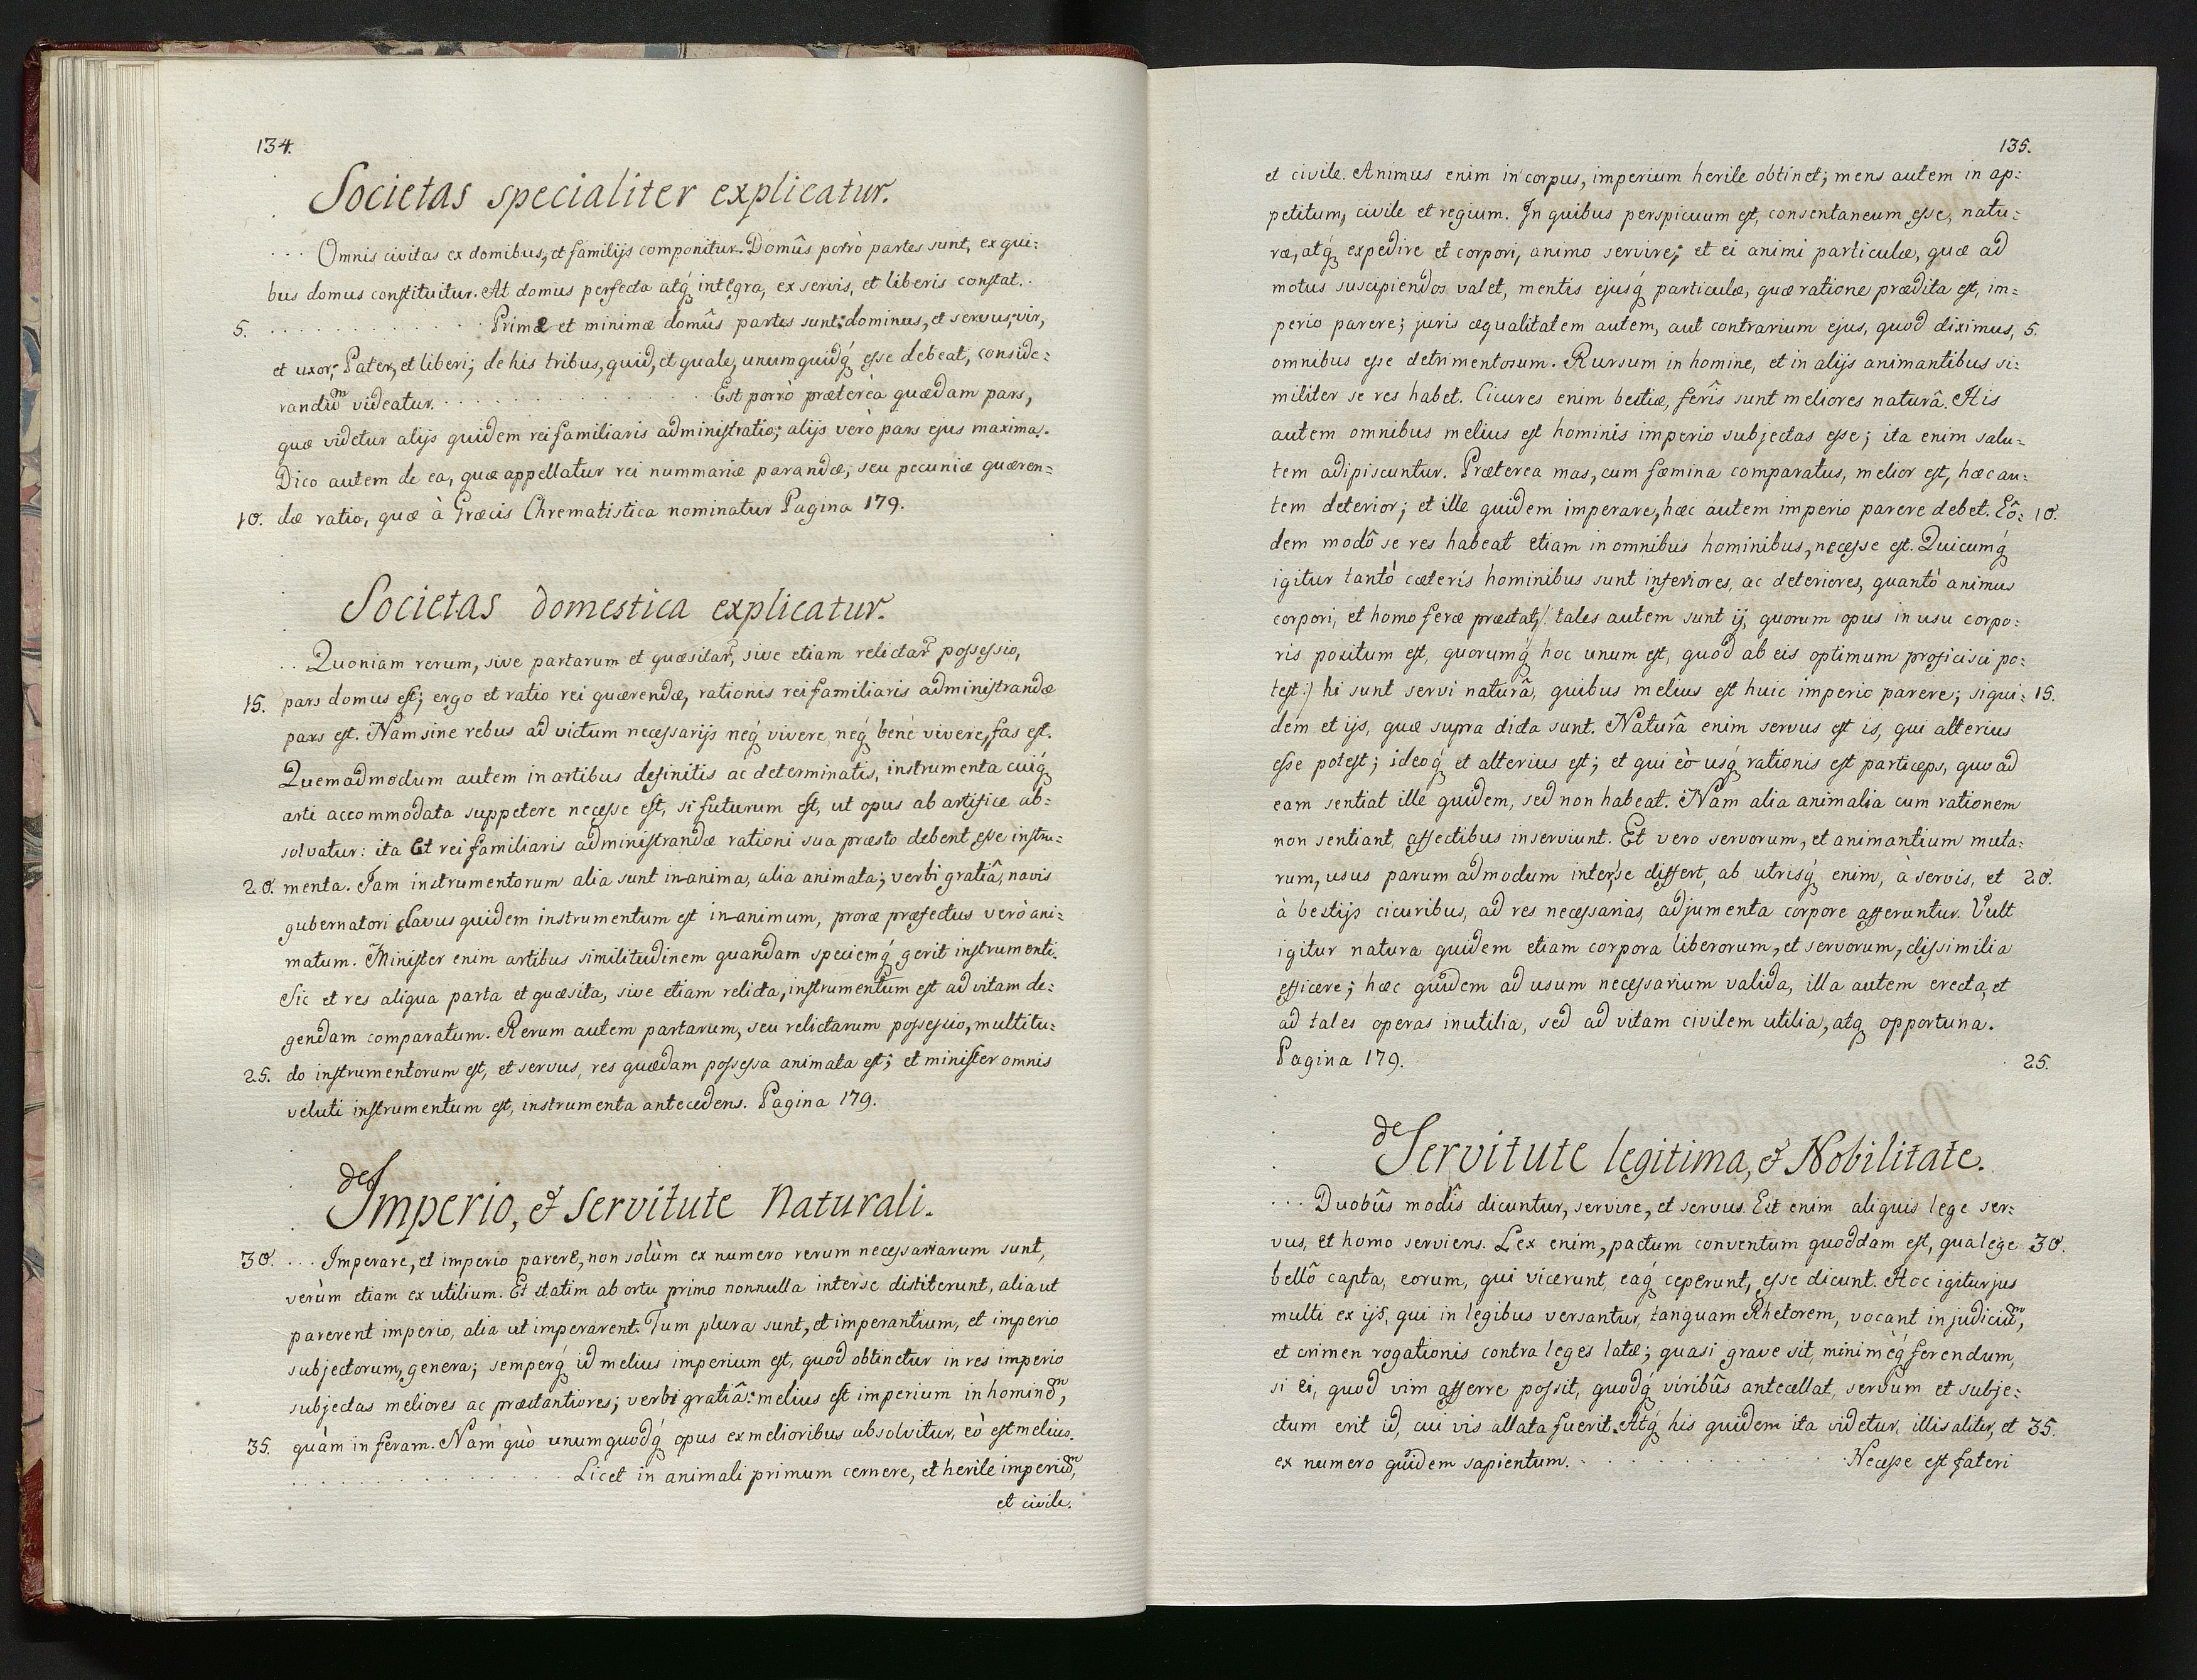 134.
Societas specialiter explicatur.
... Omnis civitas ex domibus, et familijs componitur. Domûs porrò partes sunt, ex qui:
bus domus constituitur. At domus perfecta atq́ integra, ex servis, et liberis constat..
5. . . . . . . . . . . Primæ et minimæ domûs partes sunt: dominus, et servus; vir,
et uxor; Pater, et liberi; de his tribus, quid, et quale, unumquidq́ esse debeat, conside:
randũm videatur. . . . . . . . . . . . . Est porrò præterèa quædam pars,
quæ videtur alijs quidem rei familiaris administratio; alijs verò pars ejus maxima.
Dico autem de ea, quæ appellatur rei nummariæ parandæ, seu pecuniæ quæren:
10. dæ ratio, quæ à Græcis Chrematistica nominatur Pagina 179.
Societas domestica explicatur.
.. Quoniam rerum, sive partarum et quæsitar̃, sive etiam relictar̃ possessio,
15. pars domus est; ergo et ratio rei quærendæ, rationis rei familiaris administrandæ
pars est. Nam sine rebus ad victum necessarijs neq́ vivere, neq́ benè vivere, fas est.
Quemadmodum autem in artibus definitis ac determinatis, instrumenta cuiq́
arti accommodata suppetere necesse est, si futurum est, ut opus ab artifice ab:
solvatur: ita Et rei familiaris administrandæ rationi sua præsto debent esse instru:
20. menta. Jam instrumentorum alia sunt in-anima, alia animata; verbi gratiâ, navis
gubernatori clavus quidem instrumentum est in-animum, proræ præfectus verò ani:
matum. Minister enim artibus similitudinem quandam speciemq́ gerit instrumenti.
Sic et res aliqua parta et quæsita, sive etiam relicta, instrumentum est ad vitam de:
gendam comparatum. Rerum autem partarum, seu relictarum possessio, multitu:
25. do instrumentorum est, et servus, res quædam possessa animata est; et minister omnis
veluti instrumentum est, instrumenta antecedens. Pagina 179.
de Imperio, & Servitute Naturali.
30. ... Imperare, et imperio parere, non solùm ex numero rerum necessariarum sunt,
verùm etiam ex utilium. Et statim ab ortu primo nonnulla interse distiterunt, alia ut
parerent imperio, alia ut imperarent. Tum plura sunt, et imperantium, et imperio
subjectorum, genera; semperq́ id melius imperium est, quod obtinetur in res imperio
subjectas meliores ac præstantiores; verbi gratiâ: melius est imperium in hominẽm,
35. quàm in feram. Nam quò unumquodq́ opus ex melioribus absolvitur, eò est melius.
. . . . . . . . . . . Licet in animali primum cernere, et herile imperiũm,
et civile.
135.
et civile. Animus enim in corpus, imperium herile obtinet; mens autem in ap:
petitum, civile et regium. In quibus perspicuum est, consentaneum esse, natu:
ræ, atq́ expedire et corpori, animo servire; et ei animi particulæ, quæ ad
motus suscipiendos valet, mentis ejusq́ particulæ, quæ ratione prædita est, im:
perio parere; juris æqualitatem autem, aut contrarium ejus, quod diximus, 5.
omnibus esse detrimentosum. Rursum in homine, et in alijs animantibus si:
militer se res habet. Cicures enim bestiæ, ferîs sunt meliores naturâ. His
autem omnibus melius est hominis imperio subjectas esse; ita enim salu:
tem adipiscuntur. Præterea mas, cum fæmina comparatus, melior est, hæc au:
tem deterior; et ille quidem imperare, hæc autem imperio parere debet. Eô: 10.
dem modô se res habeat etiam in omnibus hominibus, necesse est. Quicumq́
igitur tantò cæteris hominibus sunt inferiores, ac deteriores, quantò animus
corpori, et homo feræ præstat, /: tales autem sunt ij, quorum opus in usu corpo:
ris positum est, quorumq́ hoc unum est, quod ab eis optimum proficisci po:
test :/ hi sunt servi naturâ, quibus melius est huic imperio parere; siqui: 15.
dem et ijs, quæ supra dicta sunt. Naturâ enim servus est is, qui alterius
esse potest; ideoq́ et alterius est; et qui eò usq́ rationis est particeps, quo ad
eam sentiat ille quidem, sed non habeat. Nam alia animalia cum rationem
non sentiant, affectibus inserviunt. Et vero servorum, et animantium muta:
rum, usus parum admodum interse differt, ab utrisq́ enim, à servis, et 20.
à bestijs cicuribus, ad res necessarias, adjumenta corpore afferuntur. Vult
igitur natura quidem etiam corpora liberorum, et servorum, dissimilia
efficere; hæc quidem ad usum necessarium valida, illa autem erecta, et
ad tales operas inutilia, sed ad vitam civilem utilia, atq́ opportuna.
Pagina 179. 25.
de Servitute legitima, & Nobilitate.
... Duobûs modîs dicuntur, servire, et servus. Est enim aliquis lege ser:
vus, et homo serviens. Lex enim, pactum conventum quoddam est, qua lege 30.
bellô capta, eorum, qui vicerunt, eaq́ ceperunt, esse dicunt. Hoc igitur jus
multi ex ijs, qui in legibus versantur, tanquam Rhetorem, vocant in judiciũm,
et crimen rogationis contra leges latæ; quasi grave sit, minimèq́ ferendum,
si ei, quod vim afferre possit, quodq́ viribûs antecellat, servum et subje:
ctum erit id, cui vis allata fuerit. Atq́ his quidem ita videtur, illis aliter, et 35.
ex numero quidem sapientum. . . . . . . . . . . Necesse est fateri